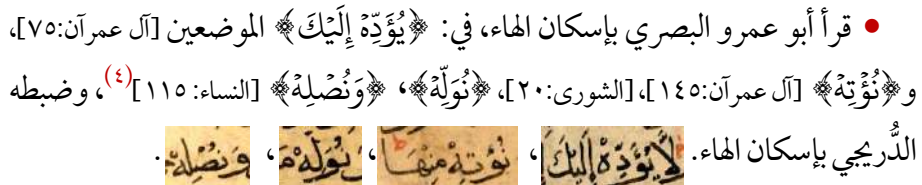 • قرأ أبو عمرو البصري بإسكان الهاء، في: ﴿يُؤَدِّهْ إِلَيْكَ﴾ الموضعين [آل عمرآن:٧٥]،
و﴿نُؤْتِهْ﴾ [آل عمرآن:١٤٥]، [الشورى:٢٠]، ﴿نُوَلِّهْ﴾، ﴿وَنُصْلِهْ﴾ [النساء: ١١٥]⁽⁴⁾، وضبطه
الدُّريجي بإسكان الهاء. لَا يُؤَدِّهْ إِلَيْكَ، نُؤْتِهْ مِنْهَا، نُوَلِّهْ مَا، وَنُصْلِهْ.